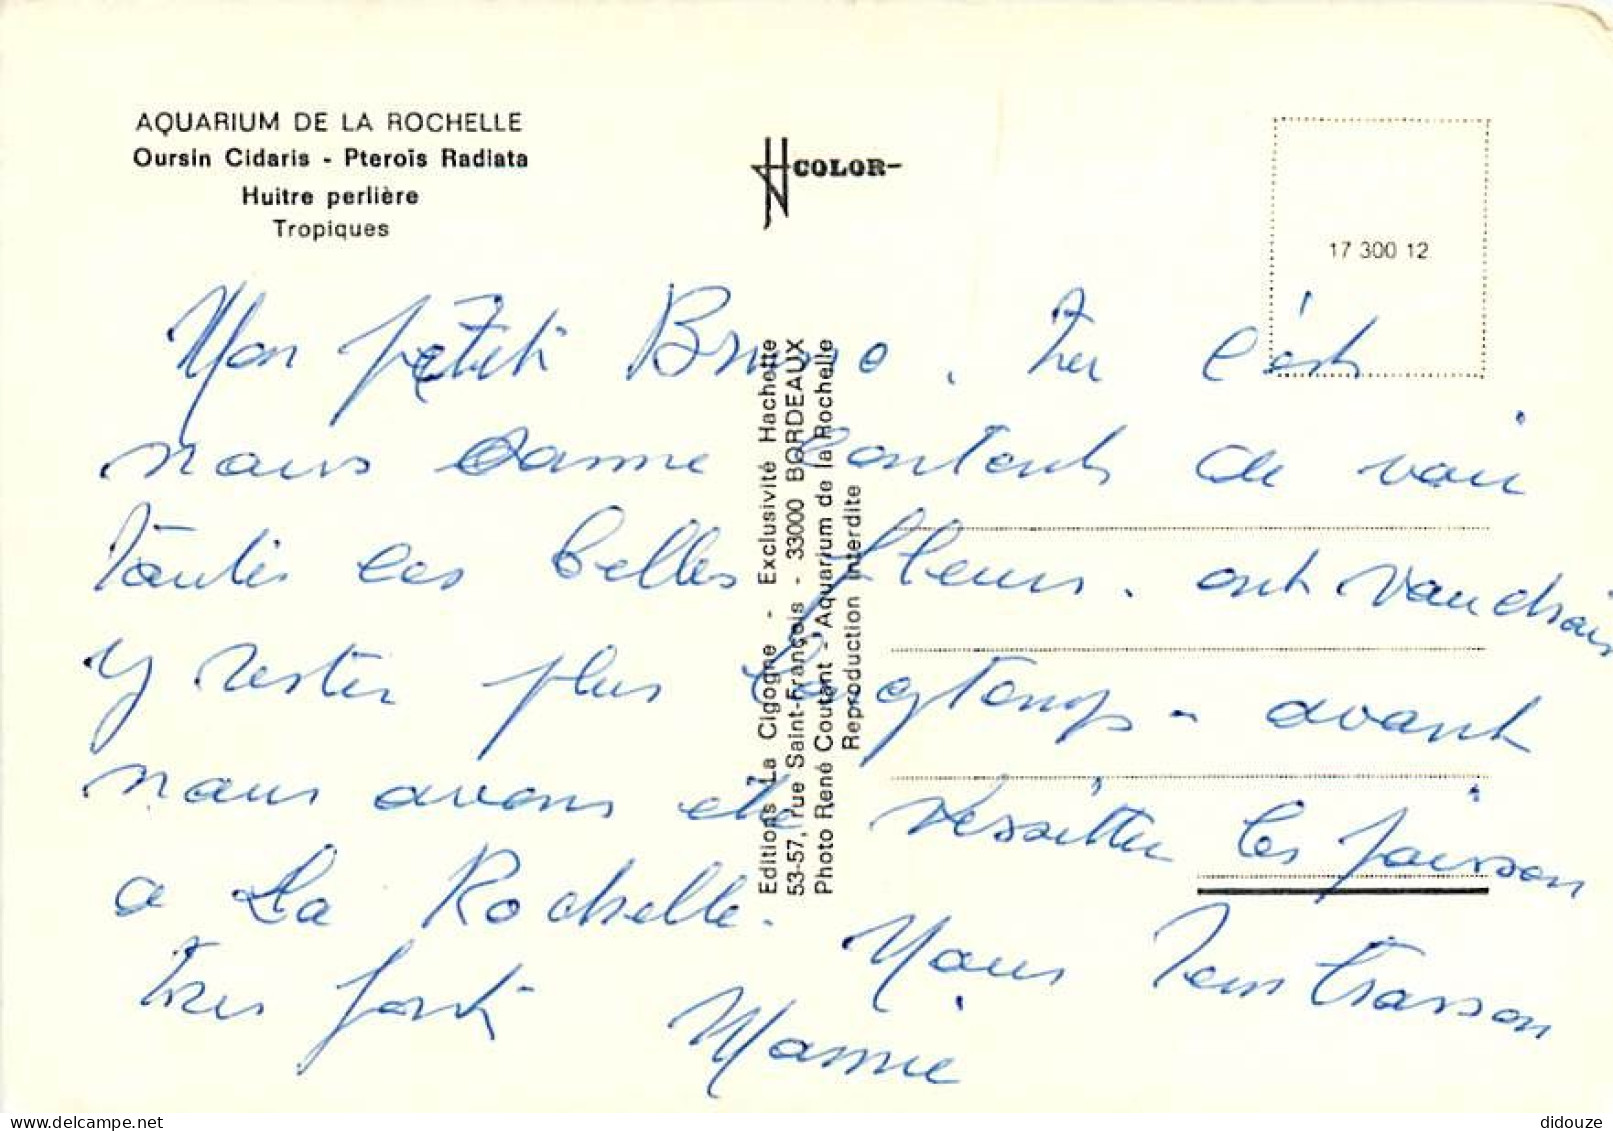 AQUARIUM DE LA ROCHELLE
Oursin Cidaris - Pteroïs Radiata
Huitre perlière
Tropiques
COLOR
17 300 12
Editions La Cigogne - Exclusivité Hachette
53-57, rue Saint-François - 33000 BORDEAUX
Photo René Coutant - Aquarium de la Rochelle
Reproduction interdite
Mon petit Bruno.
nous contents de voir
toutes ces belles fleurs. ont voudrais
y rester plus longtemps - avant
nous avons ete les poisson
a La Rochelle.
Nous
fort Mamie
delcampe.net
didouze